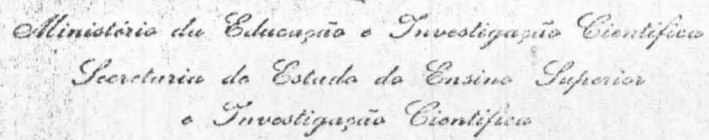 Ministério da Educação e Investigação Científica
Secretaria de Estado do Ensino Superior
e Investigação Científica